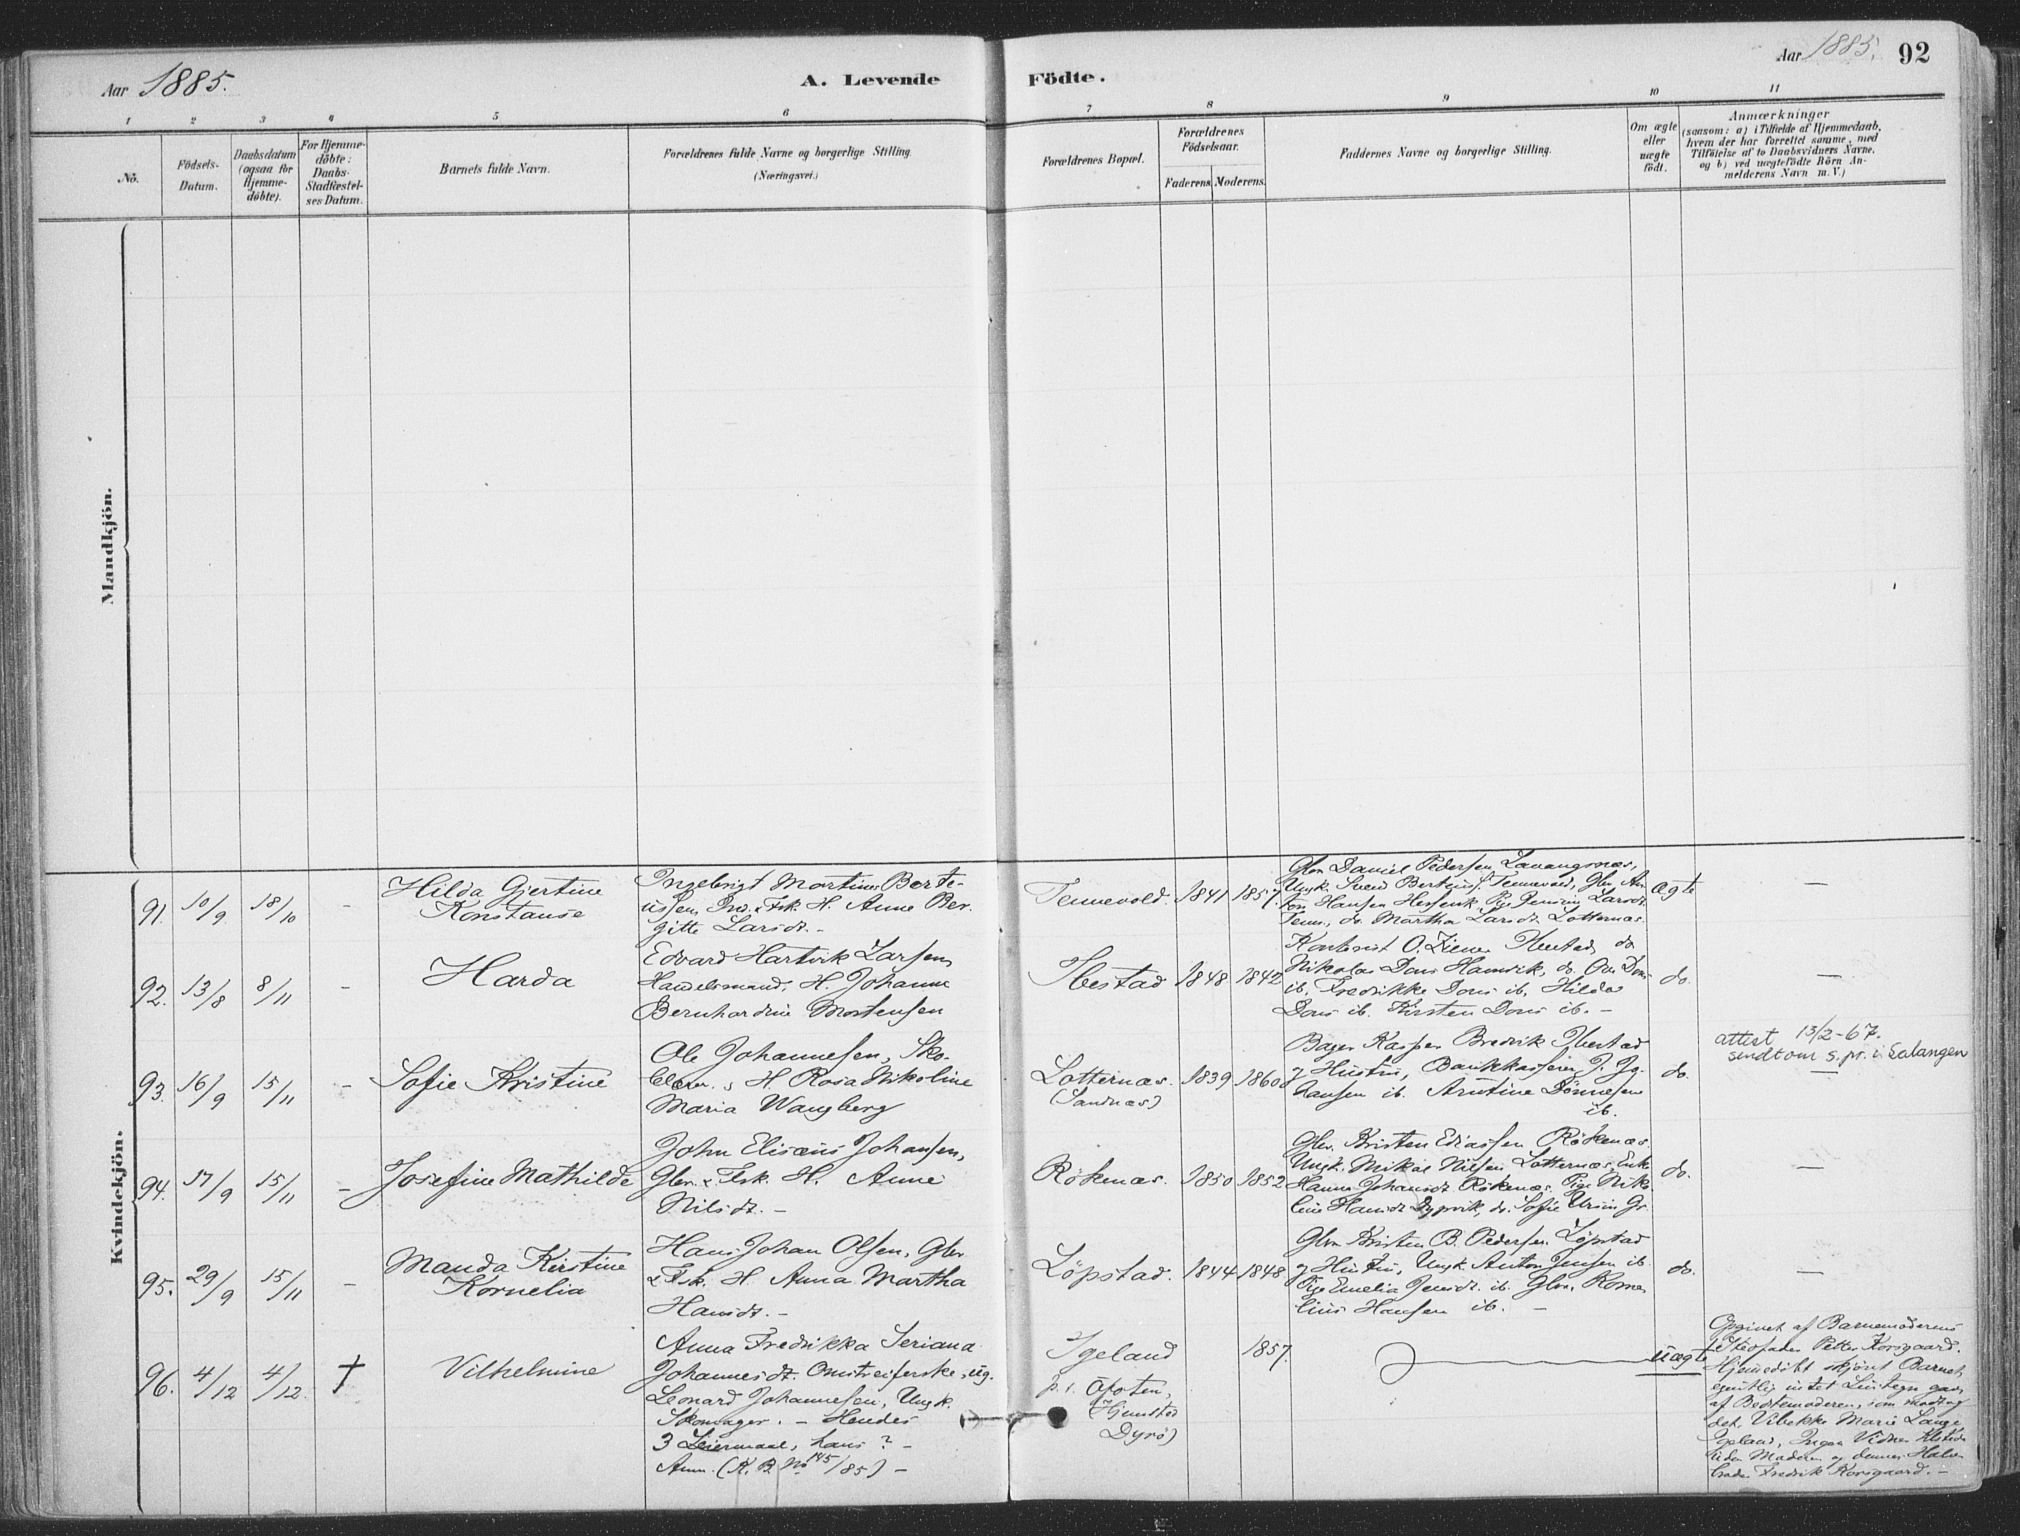 Aar 1885.
A. Levende
Födte.
Aar 1885.
92
1 2 3 4 5 6 7 8 9 10 11
No.
Födsels-
Datum.
Daabsdatum
(ogsaa for
Hjemme-
døbte).
For Hjemme-
døbte:
Daabs-
Stadfæstel-
ses Datum.
Barnets fulde Navn.
Forældrenes fulde Navne og borgerlige Stilling.
(Næringsvei.)
Forældrenes Bopæl.
Forældrenes
Födselsaar.
Faderens. Moderens.
Faddernes Navne og borgerlige Stilling.
Om ægte
eller
uægte
födt.
Anmærkninger
(saasom: a) i Tilfælde af Hjemmedaab,
hvem der har forrettet samme, med
Tilføielse af to Daabsvidners Navne,
og b) ved uægtefödte Börn An-
melderens Navn m. V.)
Mandkjön.
Kvindekjön.
91.
10/9
18/10
-
Hilda Gjertine
Konstanse
Ingebrigt Martinus Berte-
ussen, Ind. & Fsk. H. Anne Ber-
gitte Larsdt. -
Tennevold.
1841
1857.
Gbr Daniel Pedersen Lavangsnæs,
Ungk. Svend Tennevold, Gbr An-
ton Hansen Larsdt
do. Martha Larsdt. Lotternæs.
Ægte
—
92.
13/8
8/11
-
Harda
Edvard Hartvik Larsen,
Handelsmand, H. Johanne
Bernhardine Mortensen
Ibestad
1848
1842
Kontorist O. Ibestad, do
Nikolai Dons Hamvik, do. Ove Dons
ib. Fredrikke Dons ib. Hilda
Dons ib. Kirsten Dons ib. -
do.
—
93.
16/9
15/11
-
Sofie Kristine
Ole Johannesen, Sko-
lelærer. & H. Rosa Nikoline
Maria Wangberg
Lotternæs.
(Sandnæs)
1839
1860
Bager Kasper Bredvik Ibestad
og Hustru, Bankkasserer J. Jg.
Hansen ib. Arntine Dønnesen
ib.
do.
attest 13/2-67.
sendt om s.pr. i Salangen
—
94.
17/9
15/11
-
Josefine Mathilde
John Elisæus Johansen,
Gbr. & Fsk. H. Anne
Nilsdt. -
Rökenæs.
1850
1852
Gbr. Kristen Eliassen Rökenæs
Ungk. Mikal Nilsen Lotternæs, Enke
Hanna Johansdt Rökenæs, Pige Niko-
line Hansdt Dyrvik, do. Sofie Ursin Gr.
do.
—
95.
29/9
15/11
-
Manda Kirstine
Kornelia
Hans Johan Olsen, Gbr
& Fsk. H. Anna Martha
Hansdt. -
Löpstad.
1844
1848
Gbr Kristen B. Pedersen Löpstad
og Hustru, Ungk. Anton Jensen ib.
Pige Emelia Jensdt. ib. Gbr. Korne-
lius Hansen ib. -
do.
—
96.
4/12
4/12.
†
Vilhelmine
Anna Fredrikka Seriana
Johannesdt. Omstreiferske, ug.
Leonard Johannesen, Ungk.
Skomager. - Hendes
3 Leiermaal, hans ? -
Anm. (K. B. No 145/85) -
Igeland
p. t. Apoten,
Dyrö)
1857.
uægte
Opgivet af Barnemoderens
Stedfader Petter Korsgaard.
Hjemmedöbt skjönt Barnet
egentlig intet Livstegn gav
af Bedstemoderen, som modtog
det, Vibekke Marie Lange
Igeland, Ingen Vidner tilstede
uden Moderen og dennes Halv-
broder Fredrik Korsgaard. -